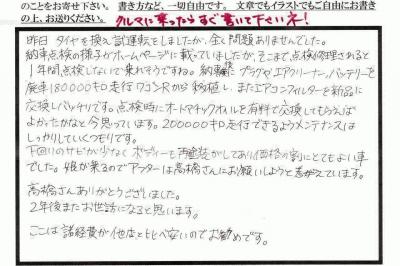 のことをお寄せ下さい。 書き方など、一切自由です。 文章でもイラストでもご自由にお書き
の上、お送りください。 クルマに乗ったらすぐ書いて下さいネ!
昨日 タイヤを換え試運転をしましたが、全く問題ありませんでした。
納車点検の様子がホームページに載っていましたが、そこまで点検修理されると
1年間点検しないで乗れそうですね。納車後 プラグやエアクリーナー、バッテリーを
廃車180000キロ走行ワゴンRから移植し、またエアコンフィルターを新品に
交換しバッチリです。点検時にオートマチックオイルを有料で交換してもらえば
よかったかなと今思っています。200000キロ走行できるようメンテナンスは
しっかりしていくつもりです。
下回りのサビが少なく ボディーも再塗装がしてあり価格の割にとてもよい車
でした。娘が乗るのでアフターは高橋さんにお願いしようと考えています。
高橋さんありがとうございました。
2年後またお世話になると思います。
ここは諸経費が他店とも比べ安いのでお勧めです。